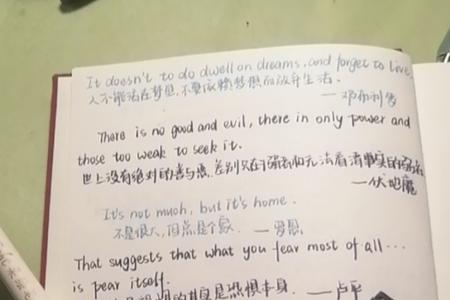 It doesn't to do dwell on dreams, and forget to live
人不能活在梦想,不要依赖梦想而放弃生活.
—邓布利多
There is no good and evil, there in only power and
those too weak to seek it.
世上没有绝对的善与恶,差别只在于强者和无法看清事实的弱者
—伏地魔
It's not much, but it's home.
不是很大,但总是个家. —罗恩
That suggests that what you fear most of all...
is pear itself.
的其实是恐惧本身. —卢平